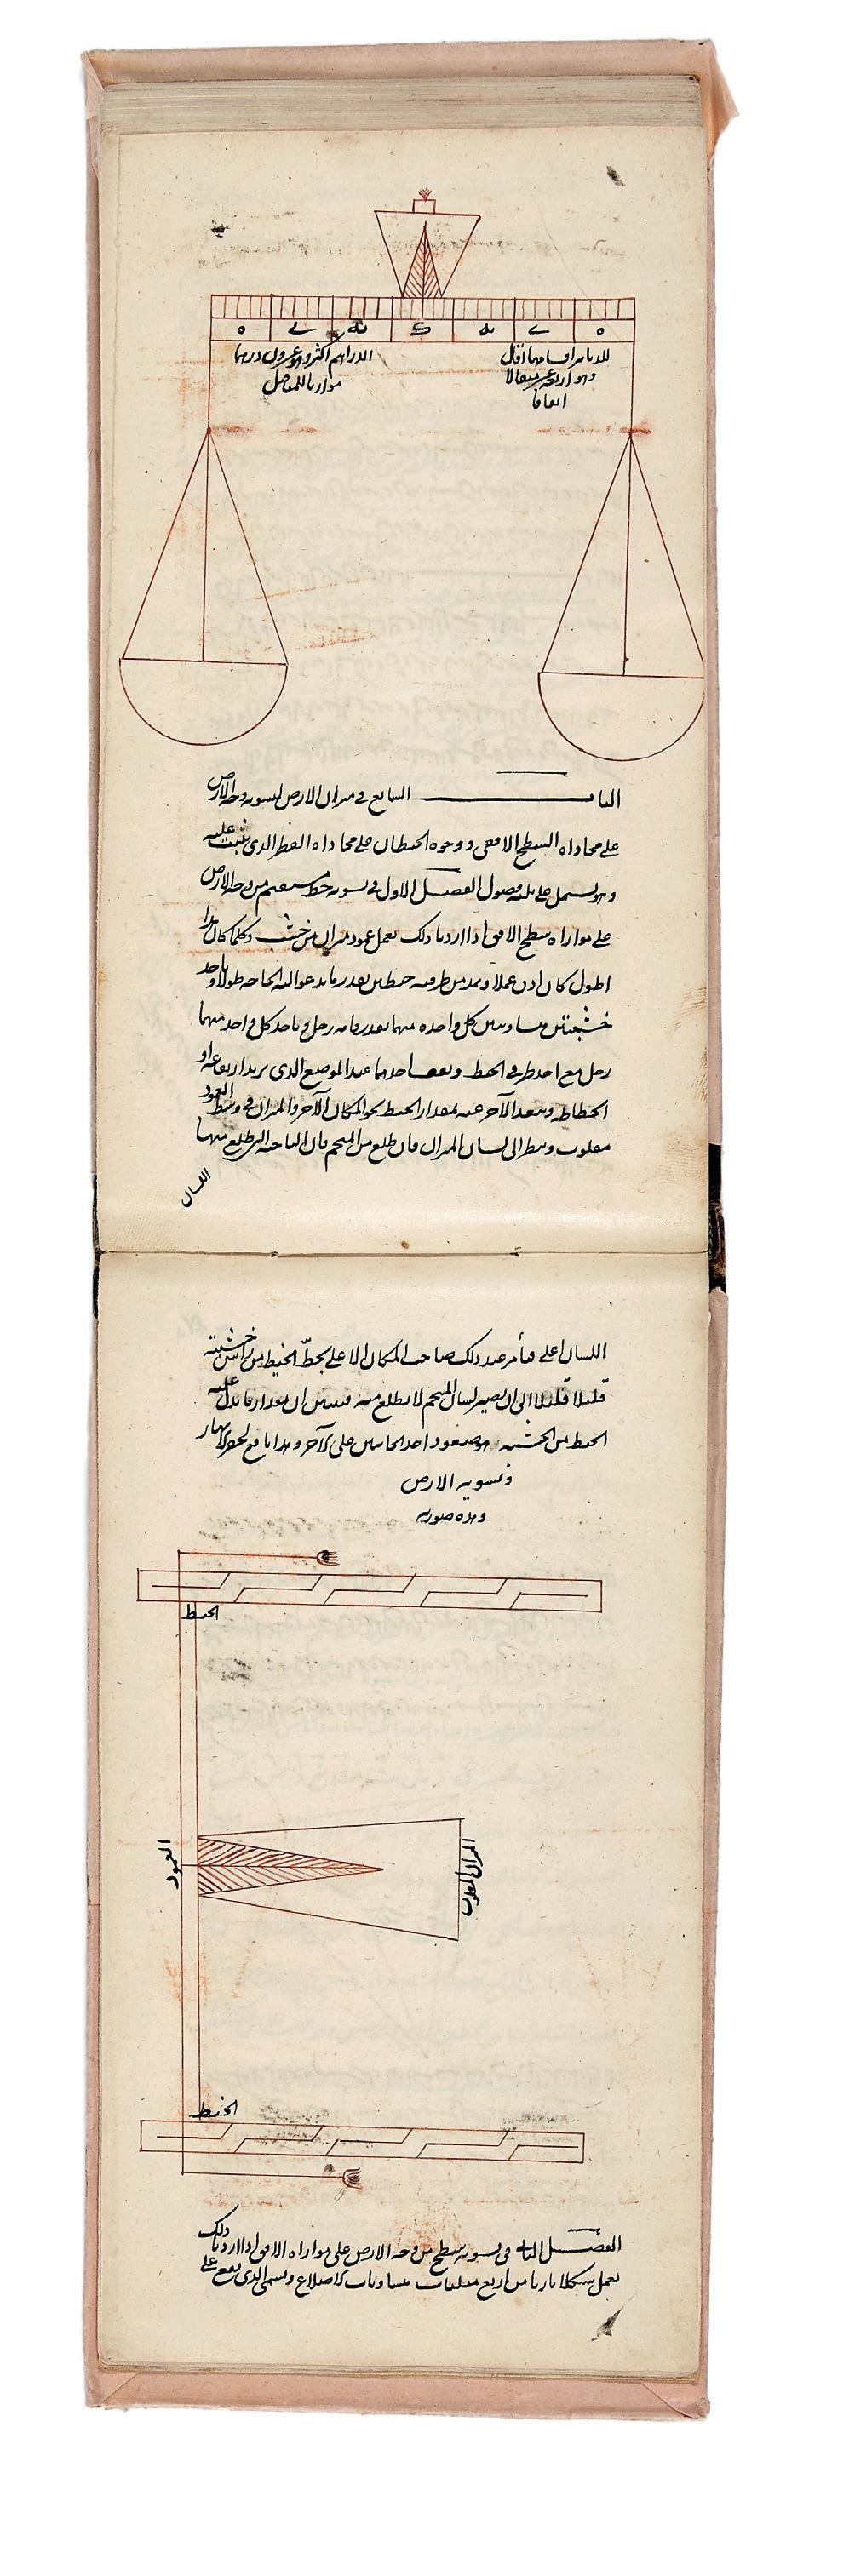 ه ى ىه ك ىه ى ه
الدراهم اكثر وهو عرون درهما
موازيا للمثاقيل
للدنانير اقسامها اقل
وهو اربعة عشر مثقالا
الباب السابع في ميزان الارض لتسوية وجه الارض
على محاذاة السطح الافقي ووجوه الحيطان على محاذاة القطر الذى يثبت عليه
وهو يشتمل على ثلثة فصول الفصل الاول في تسوية خط مستقيم من وجه الارض
على موازاة سطح الافق اذا اردنا ذلك نعمل عمود ميزان من خشب وكلما كان هذا
اطول كان ادق عملا ونمد من طرفيه خيطين بقدر ما تدعو اليه الحاجة طولا وناخذ
خشبتين متساويتين كل واحدة منهما بقدر قامة رجل وياخذ كل واحد منهما
رجل مع احد طرفي الخيط ويقف احدهما عند الموضع الذى يريد ارتفاعه او
انحطاطه ويبعد الآخر عنه بمقدار الخيط نحو المكان الآخر والميزان في وسط العمود
مقلوب وينظر الى لسان الميزان فان طلع من المنجم فان الناحية التي طلع منها
اللسان
اللسان اعلى فنأمر عند ذلك صاحب المكان الاعلى بحطّ الخيط من راس خشبته
قليلا قليلا الى ان يصير لسان المنجم لا يطلع منه فيتبين ان مقدار ما نزل عليه
الخيط من الخشبة هو صعود احد الجانبين على الآخر وهذا نافع لحفر الانهار
وتسوية الارض
وهذه صورته
الخيط
العمود
الميزان المقلوب
الخيط
الفصل الثاني في تسوية سطح من وجه الارض على موازاة الافق اذا اردنا ذلك
نعمل شكلا ناريا من اربع مثلثات متساويات الاضلاع ونسمى الذى يقع على